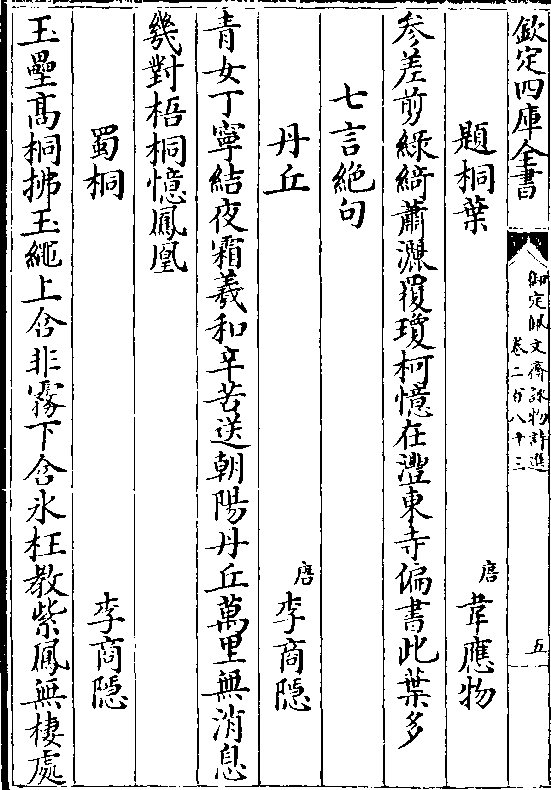 欽定四庫全書
御定佩文齋詠物詩選
卷二百八十三
五
題桐葉
唐 韋應物
參差剪綠綺蕭灑覆瓊柯憶在灃東寺偏書此葉多
七言絶句
丹丘
唐 李商隱
青女丁寧結夜霜羲和辛苦送朝陽丹丘萬里無消息
幾對梧桐憶鳳凰
蜀桐
李商隱
玉壘髙桐拂玉繩上含非霧下含氷枉教紫鳳無棲處